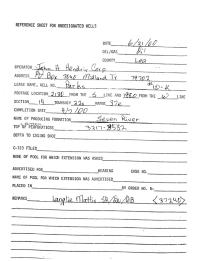 REFERENCE SHEET FOR UNDESIGNATED WELLS
DATE 6/21/60
OIL/GAS Oil
COUNTY Lea
OPERATOR John H. Hendrix Corp
ADDRESS PO Box 3040 Midland Tx 79702
LEASE NAME, WELL NO. Parks #
FOOTAGE LOCATION 2130 FROM THE S LINE AND FROM THE W LINE
SECTION TOWNSHIP 22s RANGE 37e
COMPLETION DATE
NAME OF PRODUCING FORMATION Seven River
TOP OF PERFORATIONS 3217-3552
DEPTH TO CASING SHOE
C-123 FILED
NAME OF POOL FOR WHICH EXTENSION WAS ASKED
ADVERTISED FOR HEARING CASE NO.
NAME OF POOL FOR WHICH EXTENSION WAS ADVERTISED
PLACED IN BY ORDER NO. R-
REMARKS Langlie Mattix SR/Qu/GB (37240)